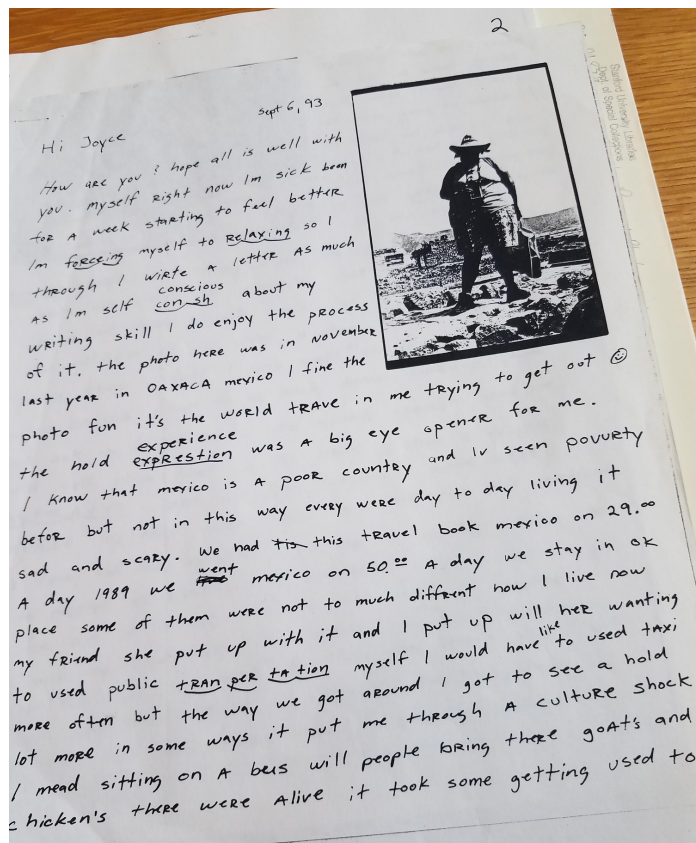 2
Stanford University Libraries
Dept. of Special Collections
Sept 6, 93
Hi Joyce
How are you? hope all is well with
you. myself Right now Im sick been
for a week starting to feel better
Im forceing myself to Relaxing so I
through I wirte a letter As much
conscious
As Im self con sh about my
writing skill I do enjoy the process
of it. the photo here was in november
last year in OAXACA mexico I fine the
photo fun it's the world trave in me trying to get out ☺
experience
the hold exprestion was a big eye opener for me.
I know that mexico is a poor country and Iv seen povurty
befor but not in this way every were day to day living it
sad and scary. We had tis this travel book mexico on 29.00
went
A day 1989 we mexico on 50.00 A day we stay in ok
place some of them were not to much diffrent how I live now
my friend she put up with it and I put up will her wanting
like
to used public tran per ta tion myself I would have to used taxi
more often but the way we got around I got to see a hold
lot more in some ways it put me through A culture shock
I mead sitting on A beus will people bring there goat's and
chicken's there were Alive it took some getting used to